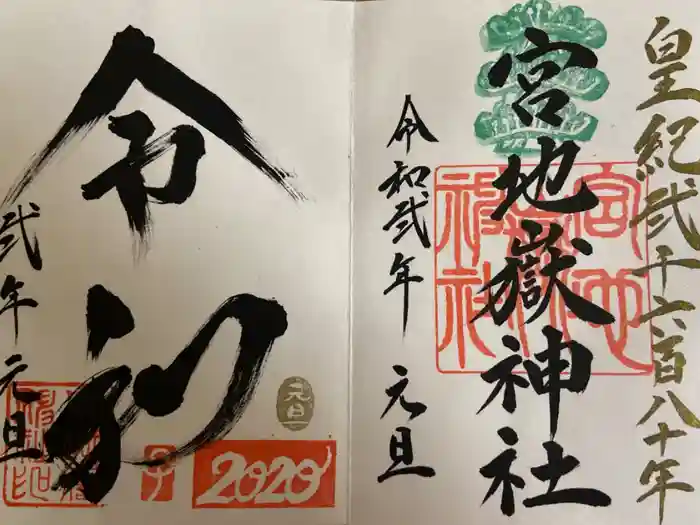 皇紀弐千六百八十年
宮地嶽神社
宮地嶽神社
令和弐年 元旦
令和
弐年元旦
元旦
子
2020